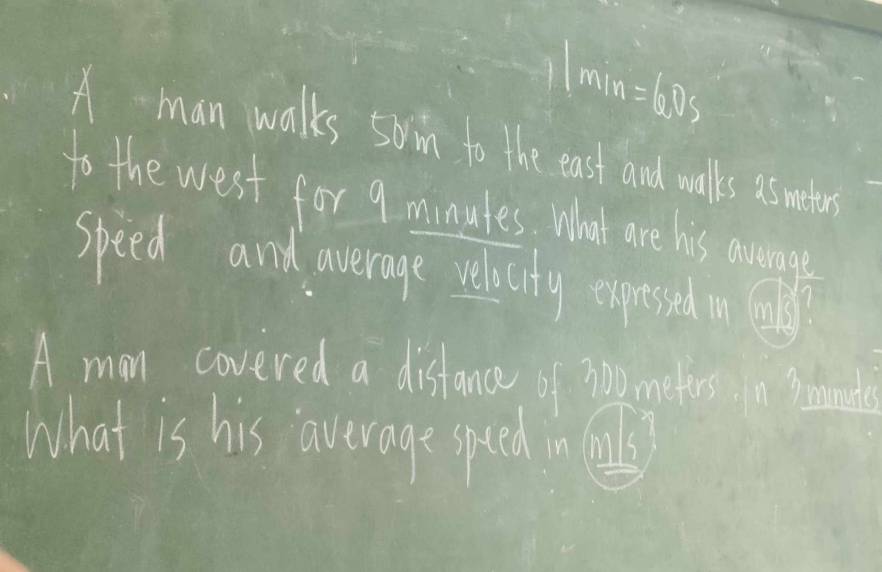 1 min = 60s
A man walks 50m to the east and walks 25 meters
to the west for 9 minutes. What are his average
Speed and average velocity expressed in m/s?
A man covered a distance of 300 meters in 3 minutes
What is his average speed in m/s?